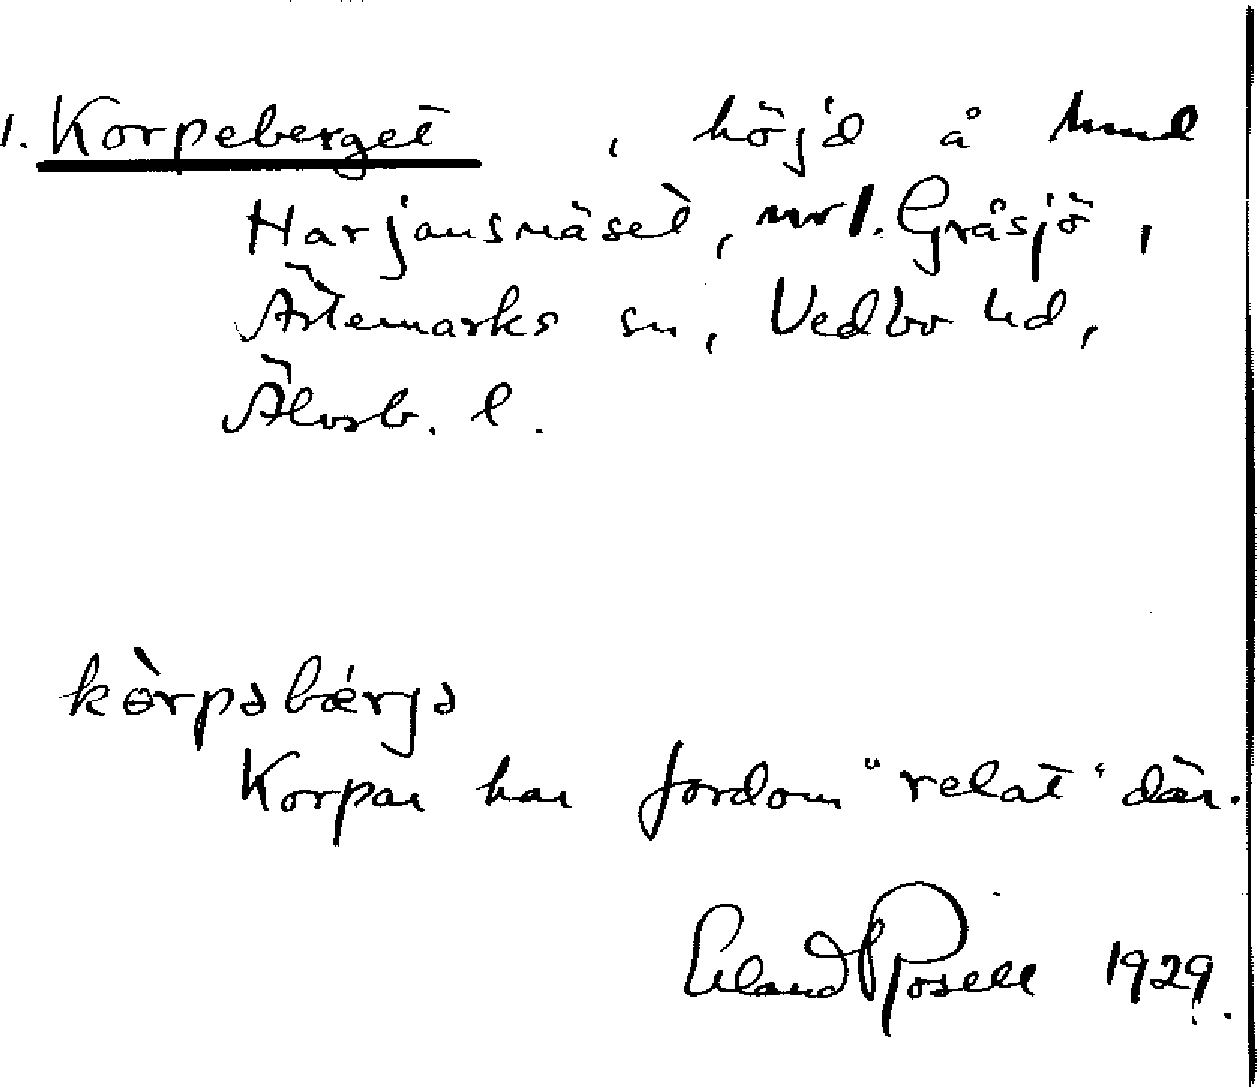 1. Korpeberget , höjd å hmd
Harjansnäset, mrl. Gråsjö,
Ärtemarks sn, Vedbo hd,
Älvsb. l.
kòrpəbǽrgə
Korpar har fordom "relat" där.
Erland Rosell 1929.